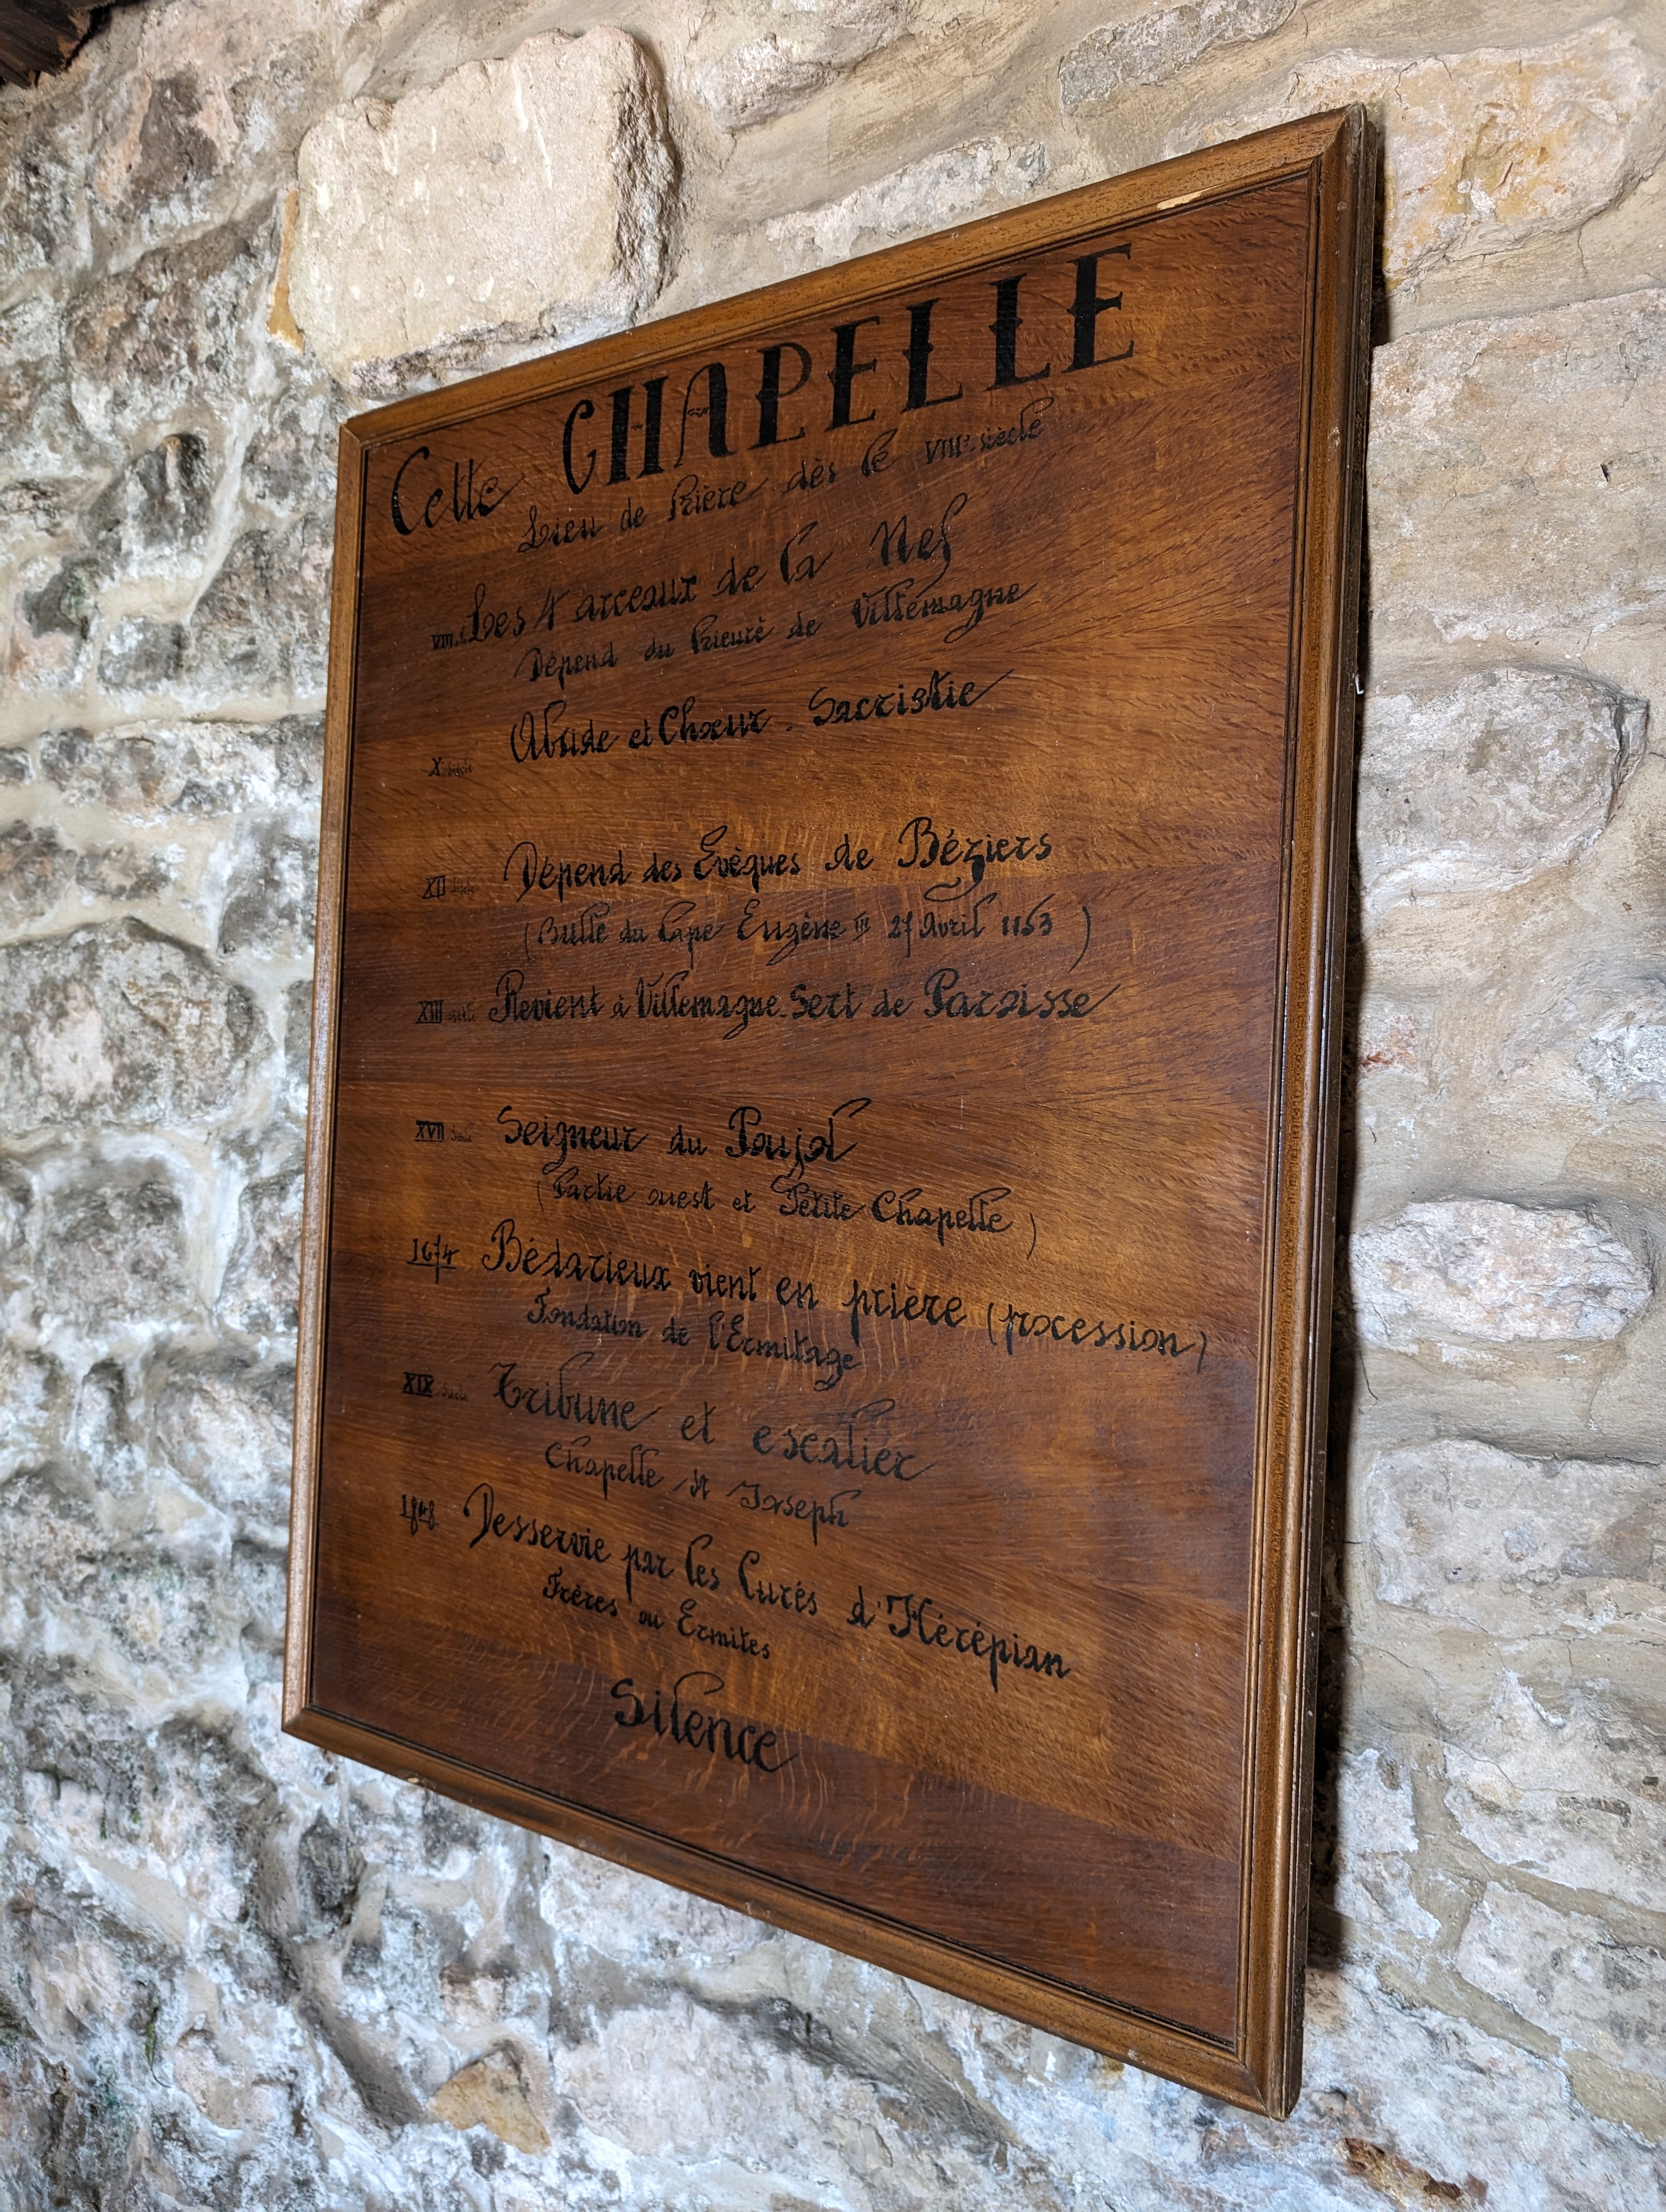 Cette CHAPELLE
Lieu de Prière dès le VIIIe siècle
VIII s. Les 4 arceaux de la Nef
Dépend du Prieuré de Villemagne
X siècle Abside et Chœur - Sacristie
XII siècle Dépend des Evèques de Béziers
(Bulle du Pape Eugène III 27 Avril 1153)
XIII siècle Revient à Villemagne. Sert de Paroisse
XVII siècle Seigneur du Poujol
(Partie ouest et Petite Chapelle)
1674 Bédarieux vient en prière (procession)
Fondation de l'Ermitage
XIX siècle Tribune et escalier
Chapelle St Joseph
Desservie par les Curés d'Hérépian
Frères ou Ermites
Silence